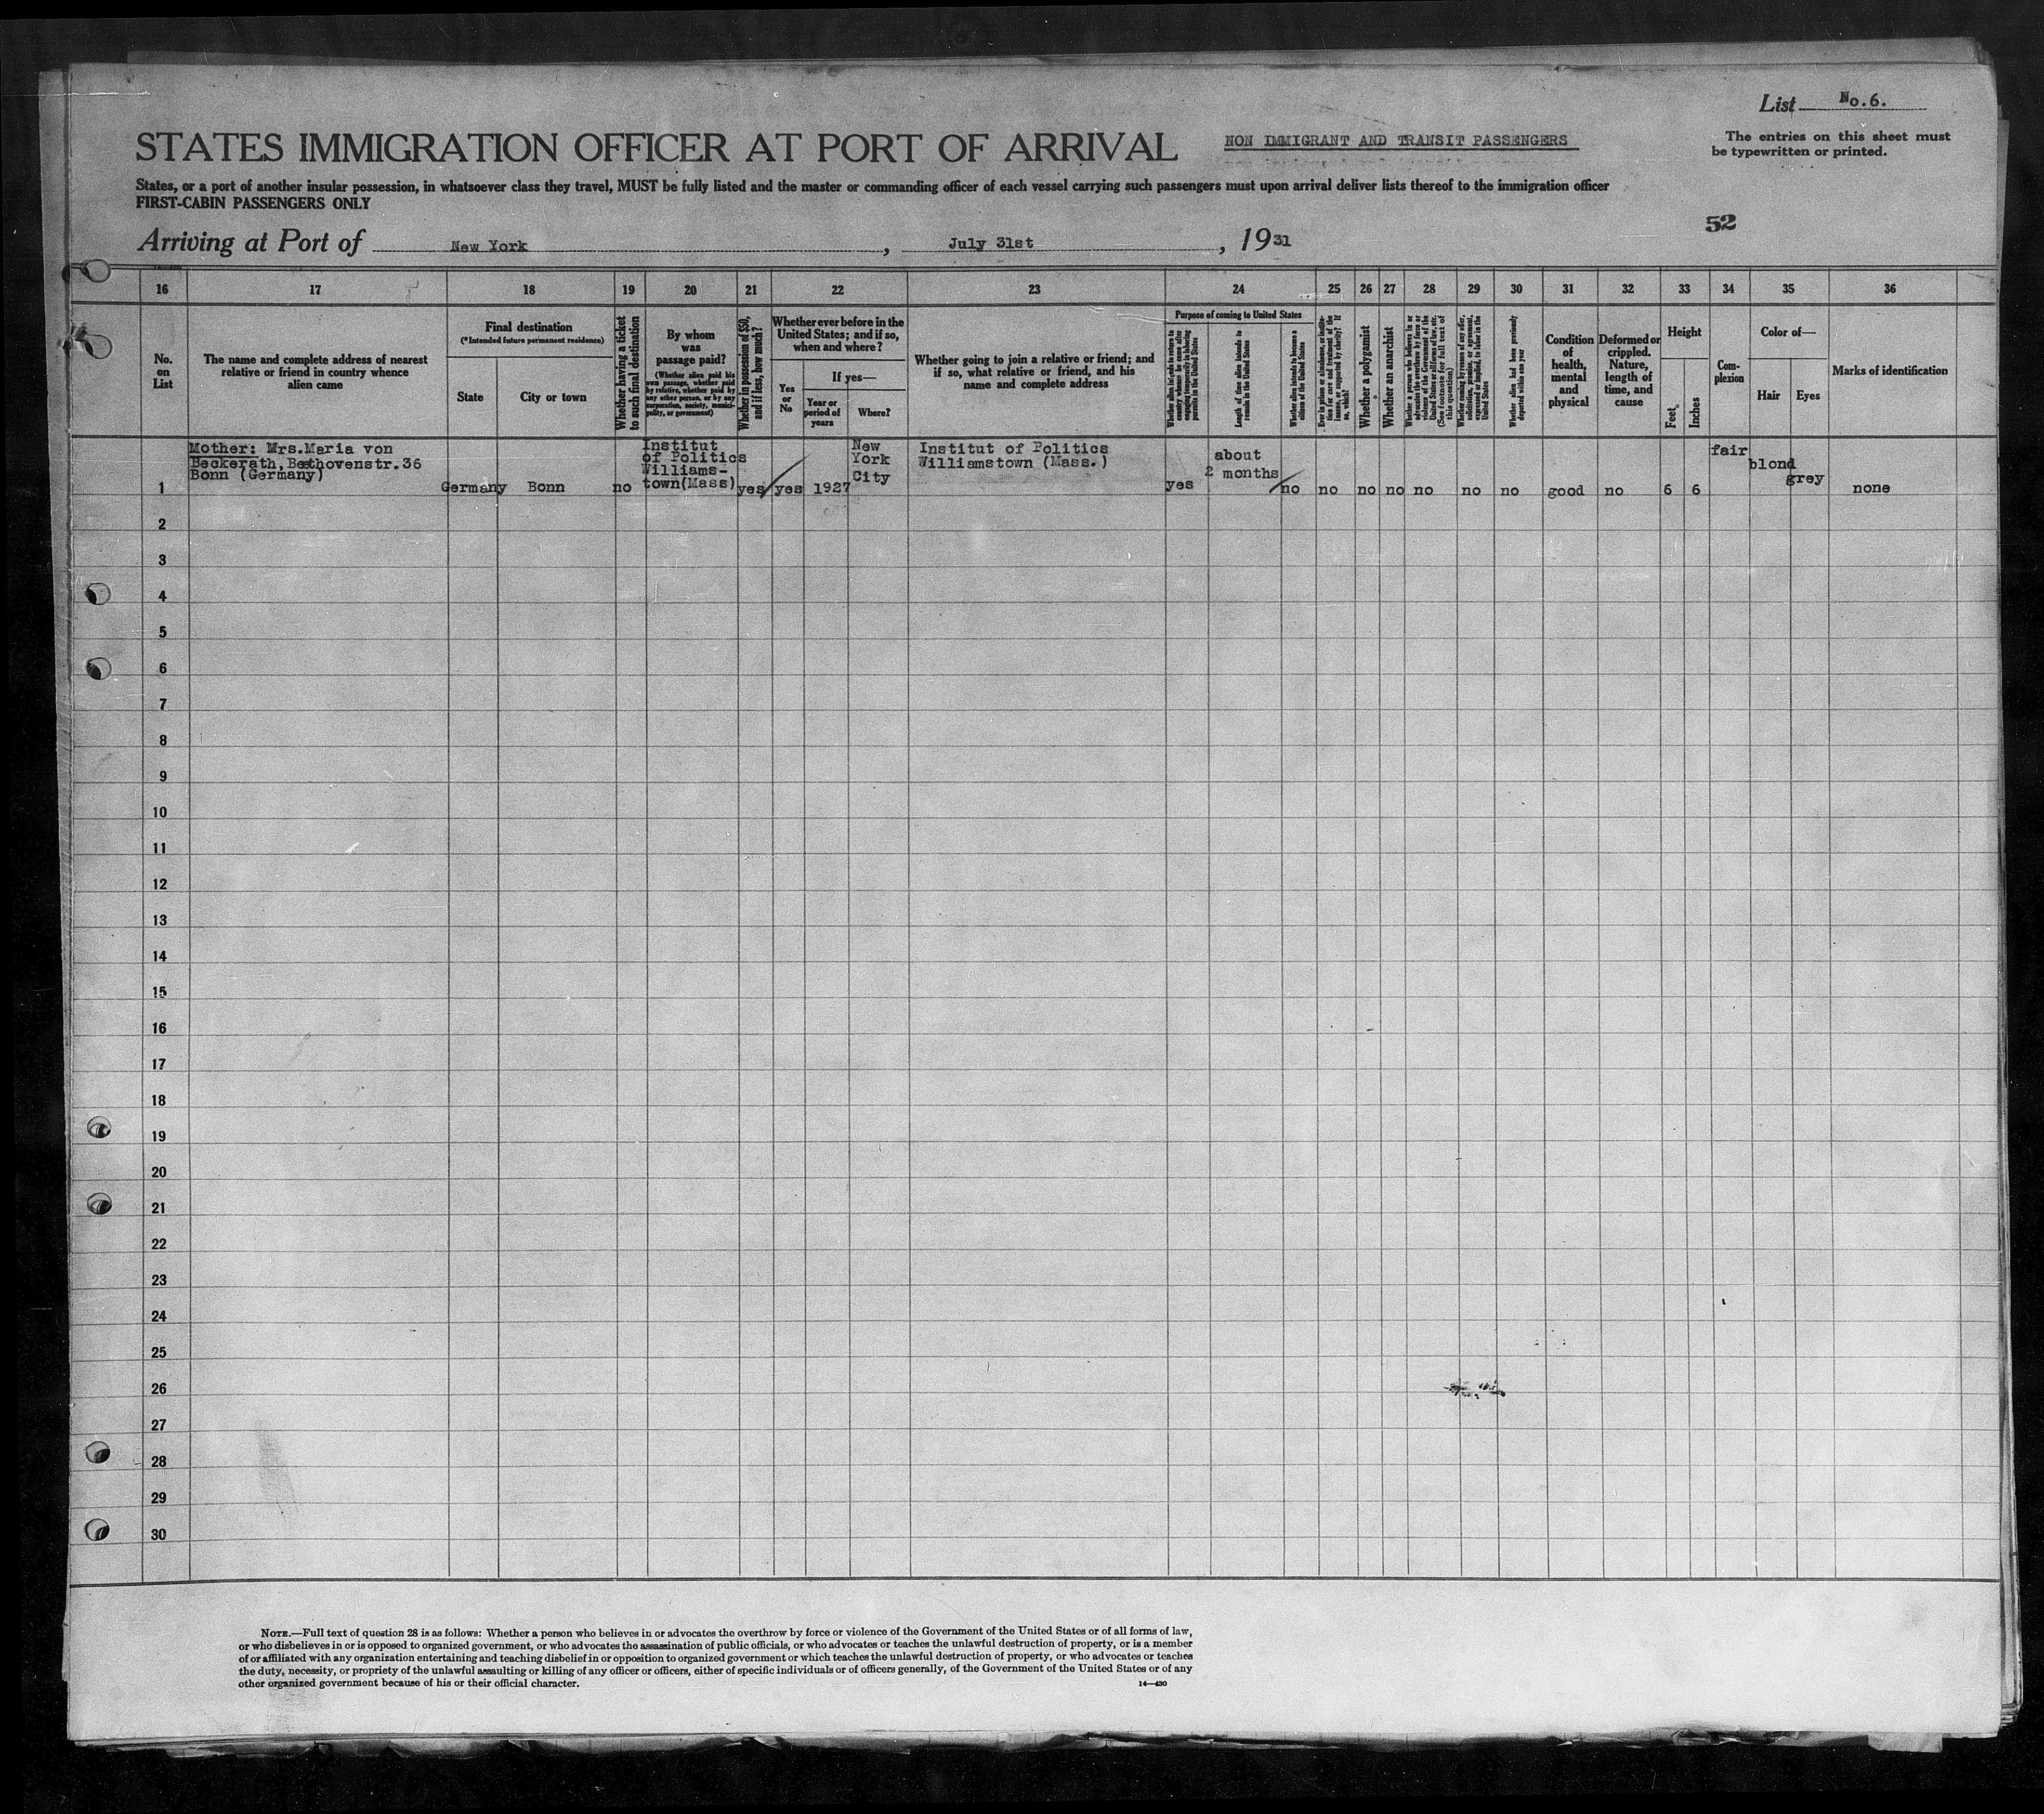 List No.6.
STATES IMMIGRATION OFFICER AT PORT OF ARRIVAL
NON IMMIGRANT AND TRANSIT PASSENGERS
The entries on this sheet must
be typewritten or printed.
States, or a port of another insular possession, in whatsoever class they travel, MUST be fully listed and the master or commanding officer of each vessel carrying such passengers must upon arrival deliver lists thereof to the immigration officer
FIRST-CABIN PASSENGERS ONLY
52
Arriving at Port of New York, July 31st, 1931
16 17 18 19 20 21 22 23 24 25 26 27 28 29 30 31 32 33 34 35 36
No.
on
List
The name and complete address of nearest
relative or friend in country whence
alien came
Final destination
(*Intended future permanent residence)
State
City or town
Whether having a ticket
to such final destination
By whom
was
passage paid?
(Whether alien paid his
own passage, whether paid
by relative, whether paid by
any other person, or by any
corporation, society, munici-
pality, or government)
Whether in possession of $50,
and if less, how much?
Whether ever before in the
United States; and if so,
when and where?
Yes
or
No
If yes—
Year or
period of
years
Where?
Whether going to join a relative or friend; and
if so, what relative or friend, and his
name and complete address
Purpose of coming to United States
Whether alien intends to return to
country whence he came after
engaging temporarily in laboring
pursuits in the United States
Length of time alien intends to
remain in the United States
Whether alien intends to become a
citizen of the United States
Ever in prison or almshouse, or institu-
tion for care and treatment of the
insane, or supported by charity? If
so, which?
Whether a polygamist
Whether an anarchist
Whether a person who believes in or
advocates the overthrow by force or
violence of the Government of the
United States or all forms of law, etc.
(See footnote for full text of
this question)
Whether coming by reason of any offer,
solicitation, promise, or agreement,
expressed or implied, to labor in the
United States
Whether alien had been previously
deported within one year
Condition
of
health,
mental
and
physical
Deformed or
crippled.
Nature,
length of
time, and
cause
Height
Feet
Inches
Com-
plexion
Color of—
Hair
Eyes
Marks of identification
1
Mother: Mrs.Maria von
Beckerath,Beethovenstr.36
Bonn (Germany)
Germany
Bonn
no
Institut
of Politics
Williams-
town(Mass)
yes
yes
1927
New
York
City
Institut of Politics
Williamstown (Mass.)
yes
about
2 months
no
no
no
no
no
no
no
good
no
6
6
fair
blond
grey
none
2
3
4
5
6
7
8
9
10
11
12
13
14
15
16
17
18
19
20
21
22
23
24
25
26
27
28
29
30
NOTE.—Full text of question 28 is as follows: Whether a person who believes in or advocates the overthrow by force or violence of the Government of the United States or of all forms of law,
or who disbelieves in or is opposed to organized government, or who advocates the assassination of public officials, or who advocates or teaches the unlawful destruction of property, or is a member
of or affiliated with any organization entertaining and teaching disbelief in or opposition to organized government or which teaches the unlawful destruction of property, or who advocates or teaches
the duty, necessity, or propriety of the unlawful assaulting or killing of any officer or officers, either of specific individuals or of officers generally, of the Government of the United States or of any
other organized government because of his or their official character.
14—430